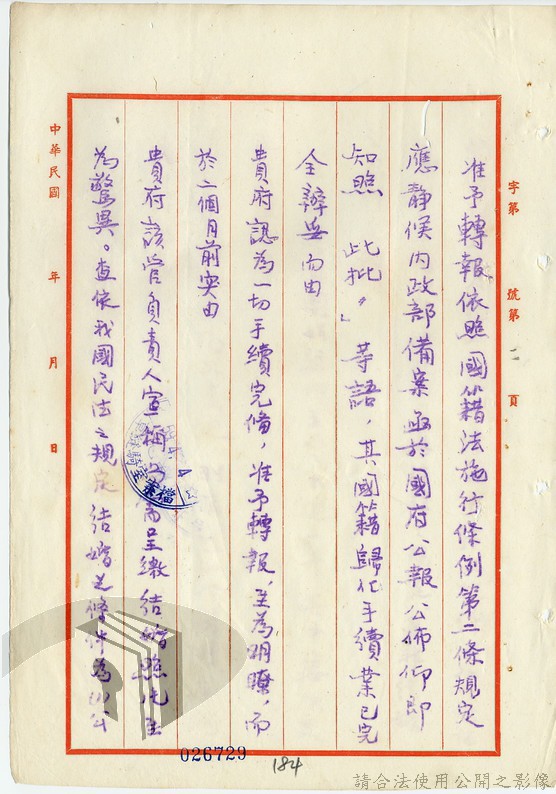 字第　號第二頁
准予轉報依照國籍法施行條例第二條規定
應靜候內政部備案函於國府公報公佈仰即
知照　此批〞」等語，其國籍歸化手續業已完
全辦妥而由
貴府認為一切手續完備，准予轉報，至為明瞭，而
於二個月前突由
貴府該管負責人宣稱尚需呈繳結婚照凭至
為驚異。查依我國民法之規定結婚之條件為以公
中華民國　年　月　日
檔案
026729
184
請合法使用公開之影像